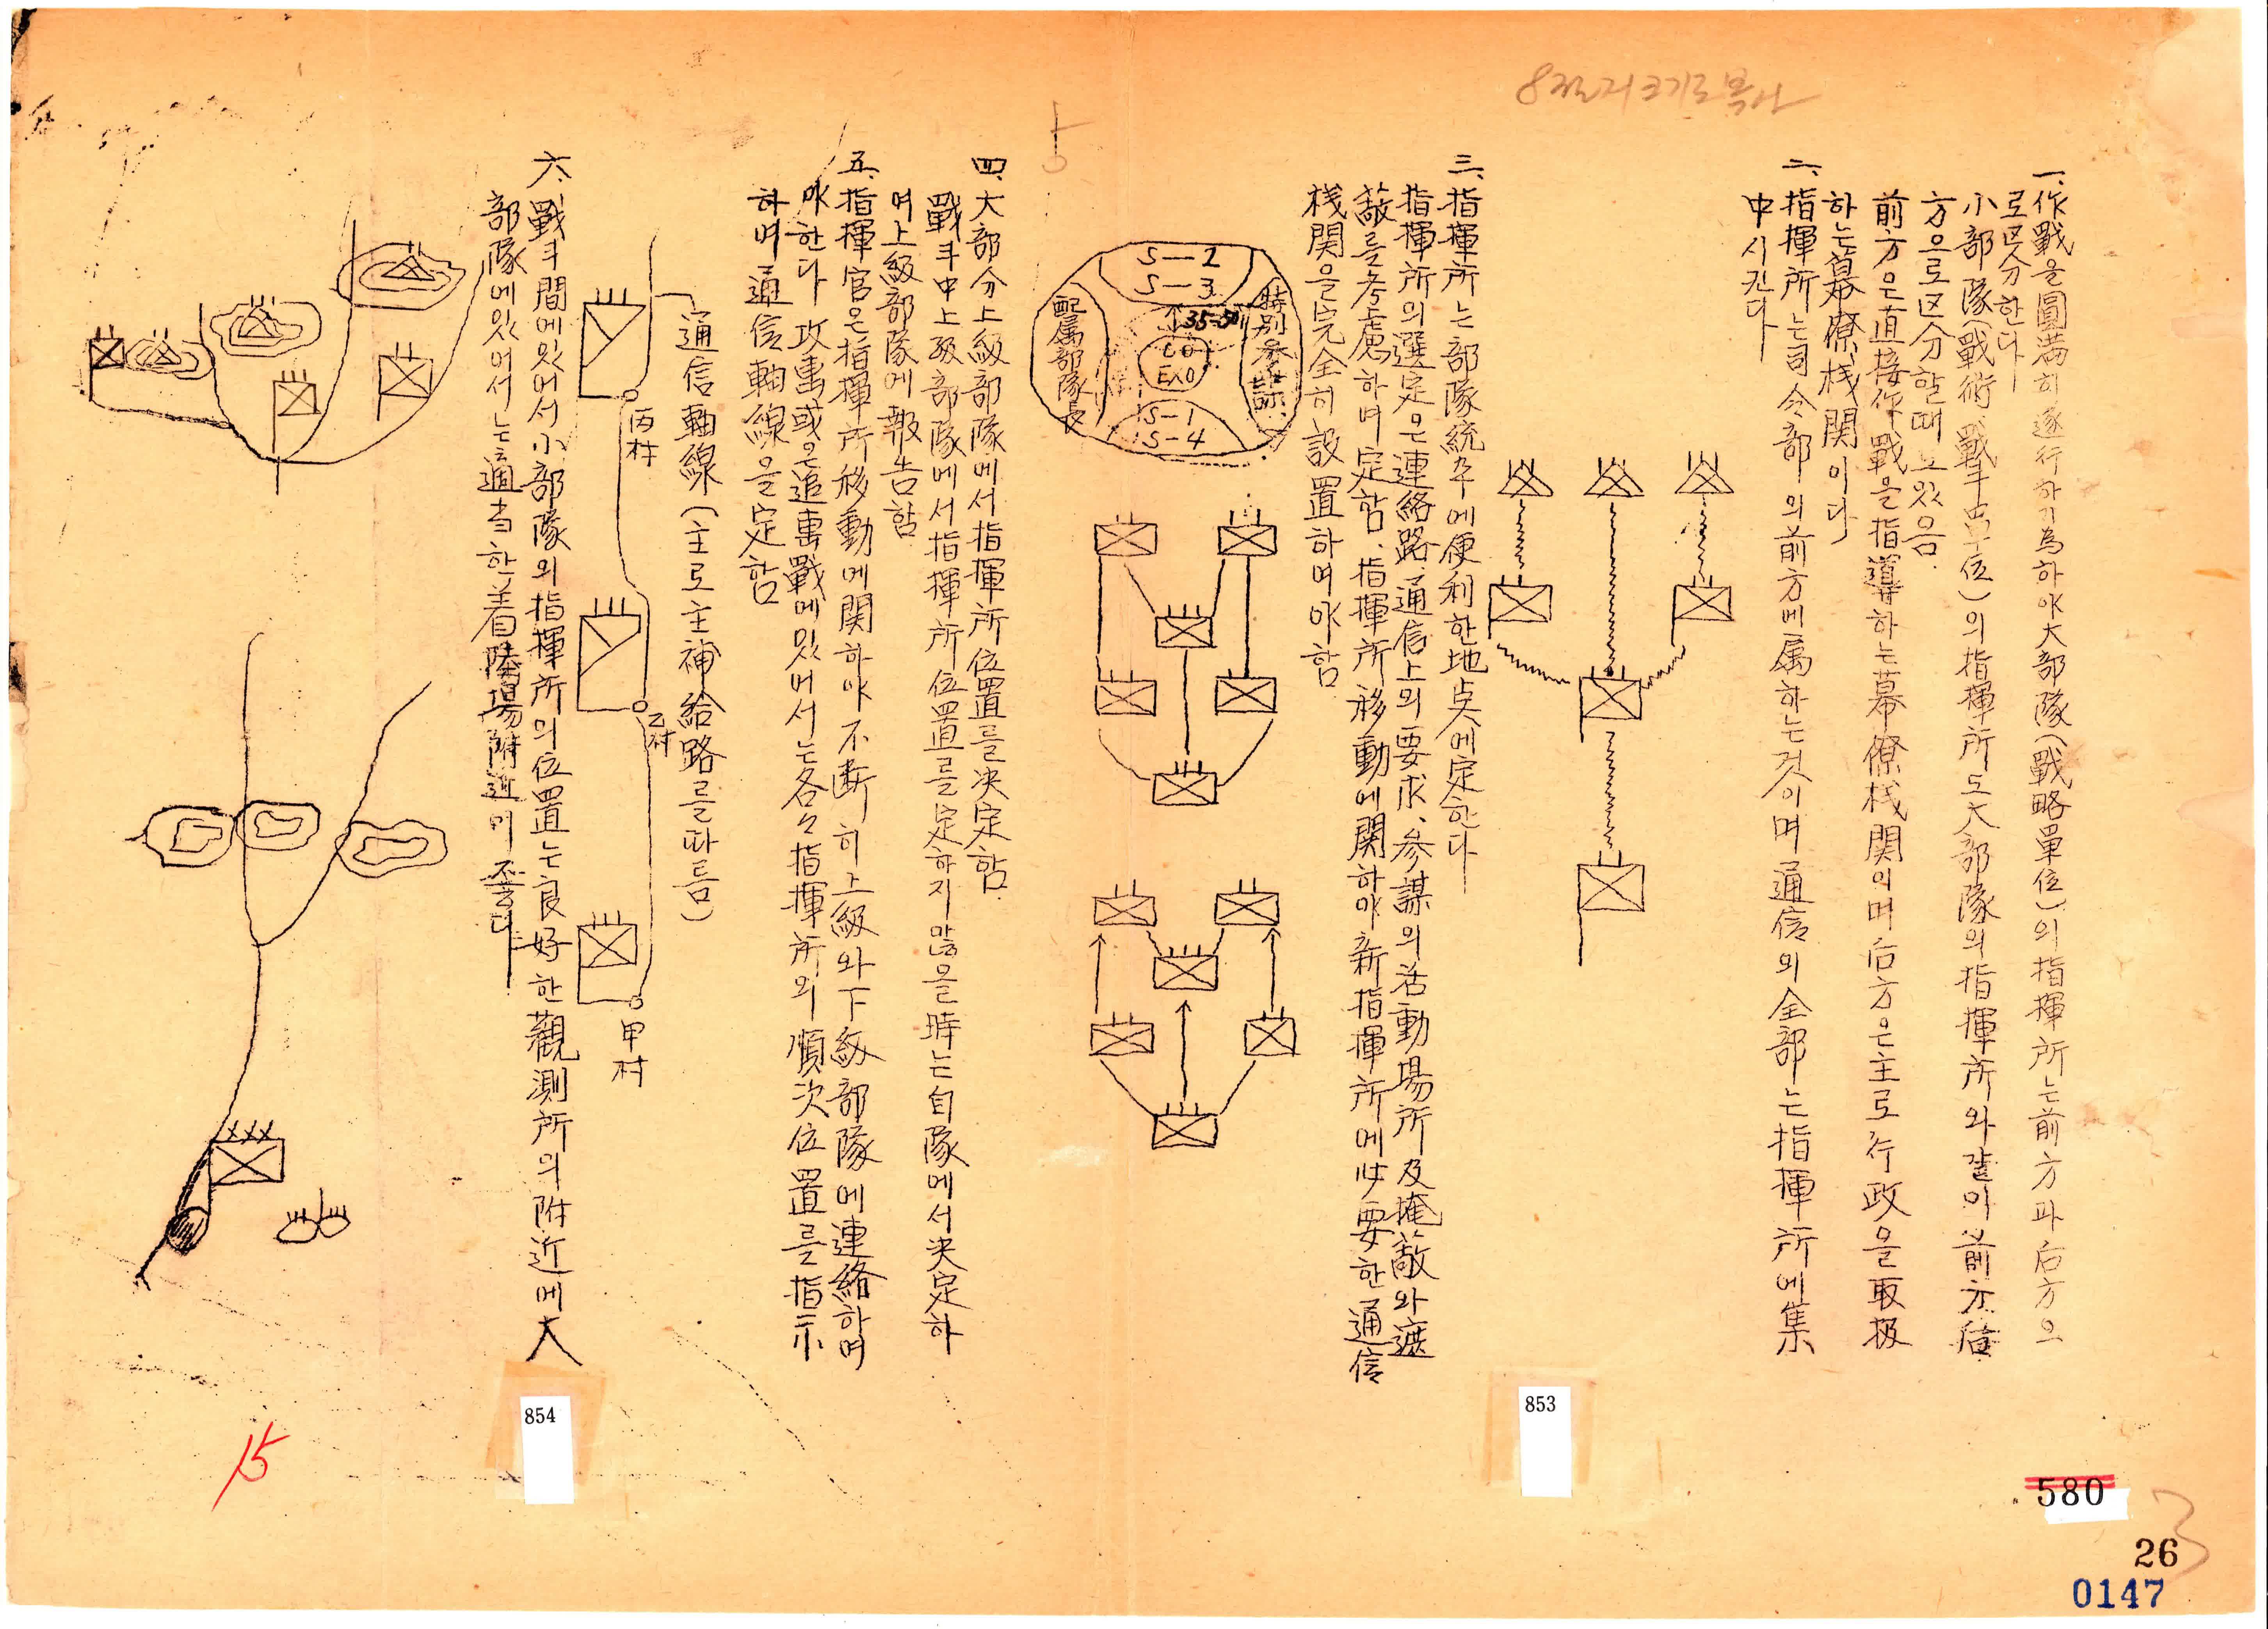 一. 作戰을圓滿히遂行하기爲하야大部隊(戰略單位)의指揮所는前方과后方으
로区分한다
小部隊(戰術 戰斗單位)의指揮所도大部隊의指揮所와같이前方后
方으로区分할때도있음.
前方은直接作戰을指導하는幕僚桟関이며后方은主로行政을取扱
하는幕僚桟関이다
二、指揮所는司令部의前方에属하는것이며通信의全部는指揮所에集
中시킨다
三、指揮所는部隊統率에便利한地点에定한다
指揮所의選定은連絡路、通信上의要求、参謀의活動場所及掩蔽와遮
蔽를考慮하며定함、指揮所移動에関하야新指揮所에必要한通信
桟関을完全히設置하며야함
S-2
S-3
35-50
特別参謀
CO
EXO
配属部隊長
S-1
S-4
四、大部分上級部隊에서指揮所位置를決定함.
戰斗中上級部隊에서指揮所位置를定하지많을時는自隊에서決定하
여上級部隊에報告함
五、指揮官은指揮所移動에関하야不断히上級와下級部隊에連絡하며
야한다 攻擊或은追擊戰에있어서는各々指揮所의順次位置를指示
하며通信軸線을定함
通信軸線(主로主補給路를따름)
丙村
乙村
甲村
六、戰斗間에있어서小部隊의指揮所의位置는良好한觀測所의附近에大
部隊에있어서는適当한着陸場附近이좋다
854
853
15
580
26
0147